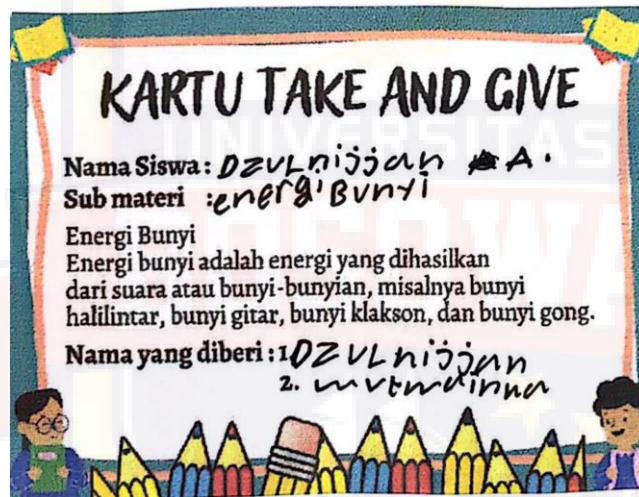 KARTU TAKE AND GIVE
UNIVERSITAS
Nama Siswa : DZULnijjan A.
Sub materi : energi Bunyi
Energi Bunyi
Energi bunyi adalah energi yang dihasilkan
dari suara atau bunyi-bunyian, misalnya bunyi
halilintar, bunyi gitar, bunyi klakson, dan bunyi gong.
Nama yang diberi : 1 DZULnijjan
2. mutmainna